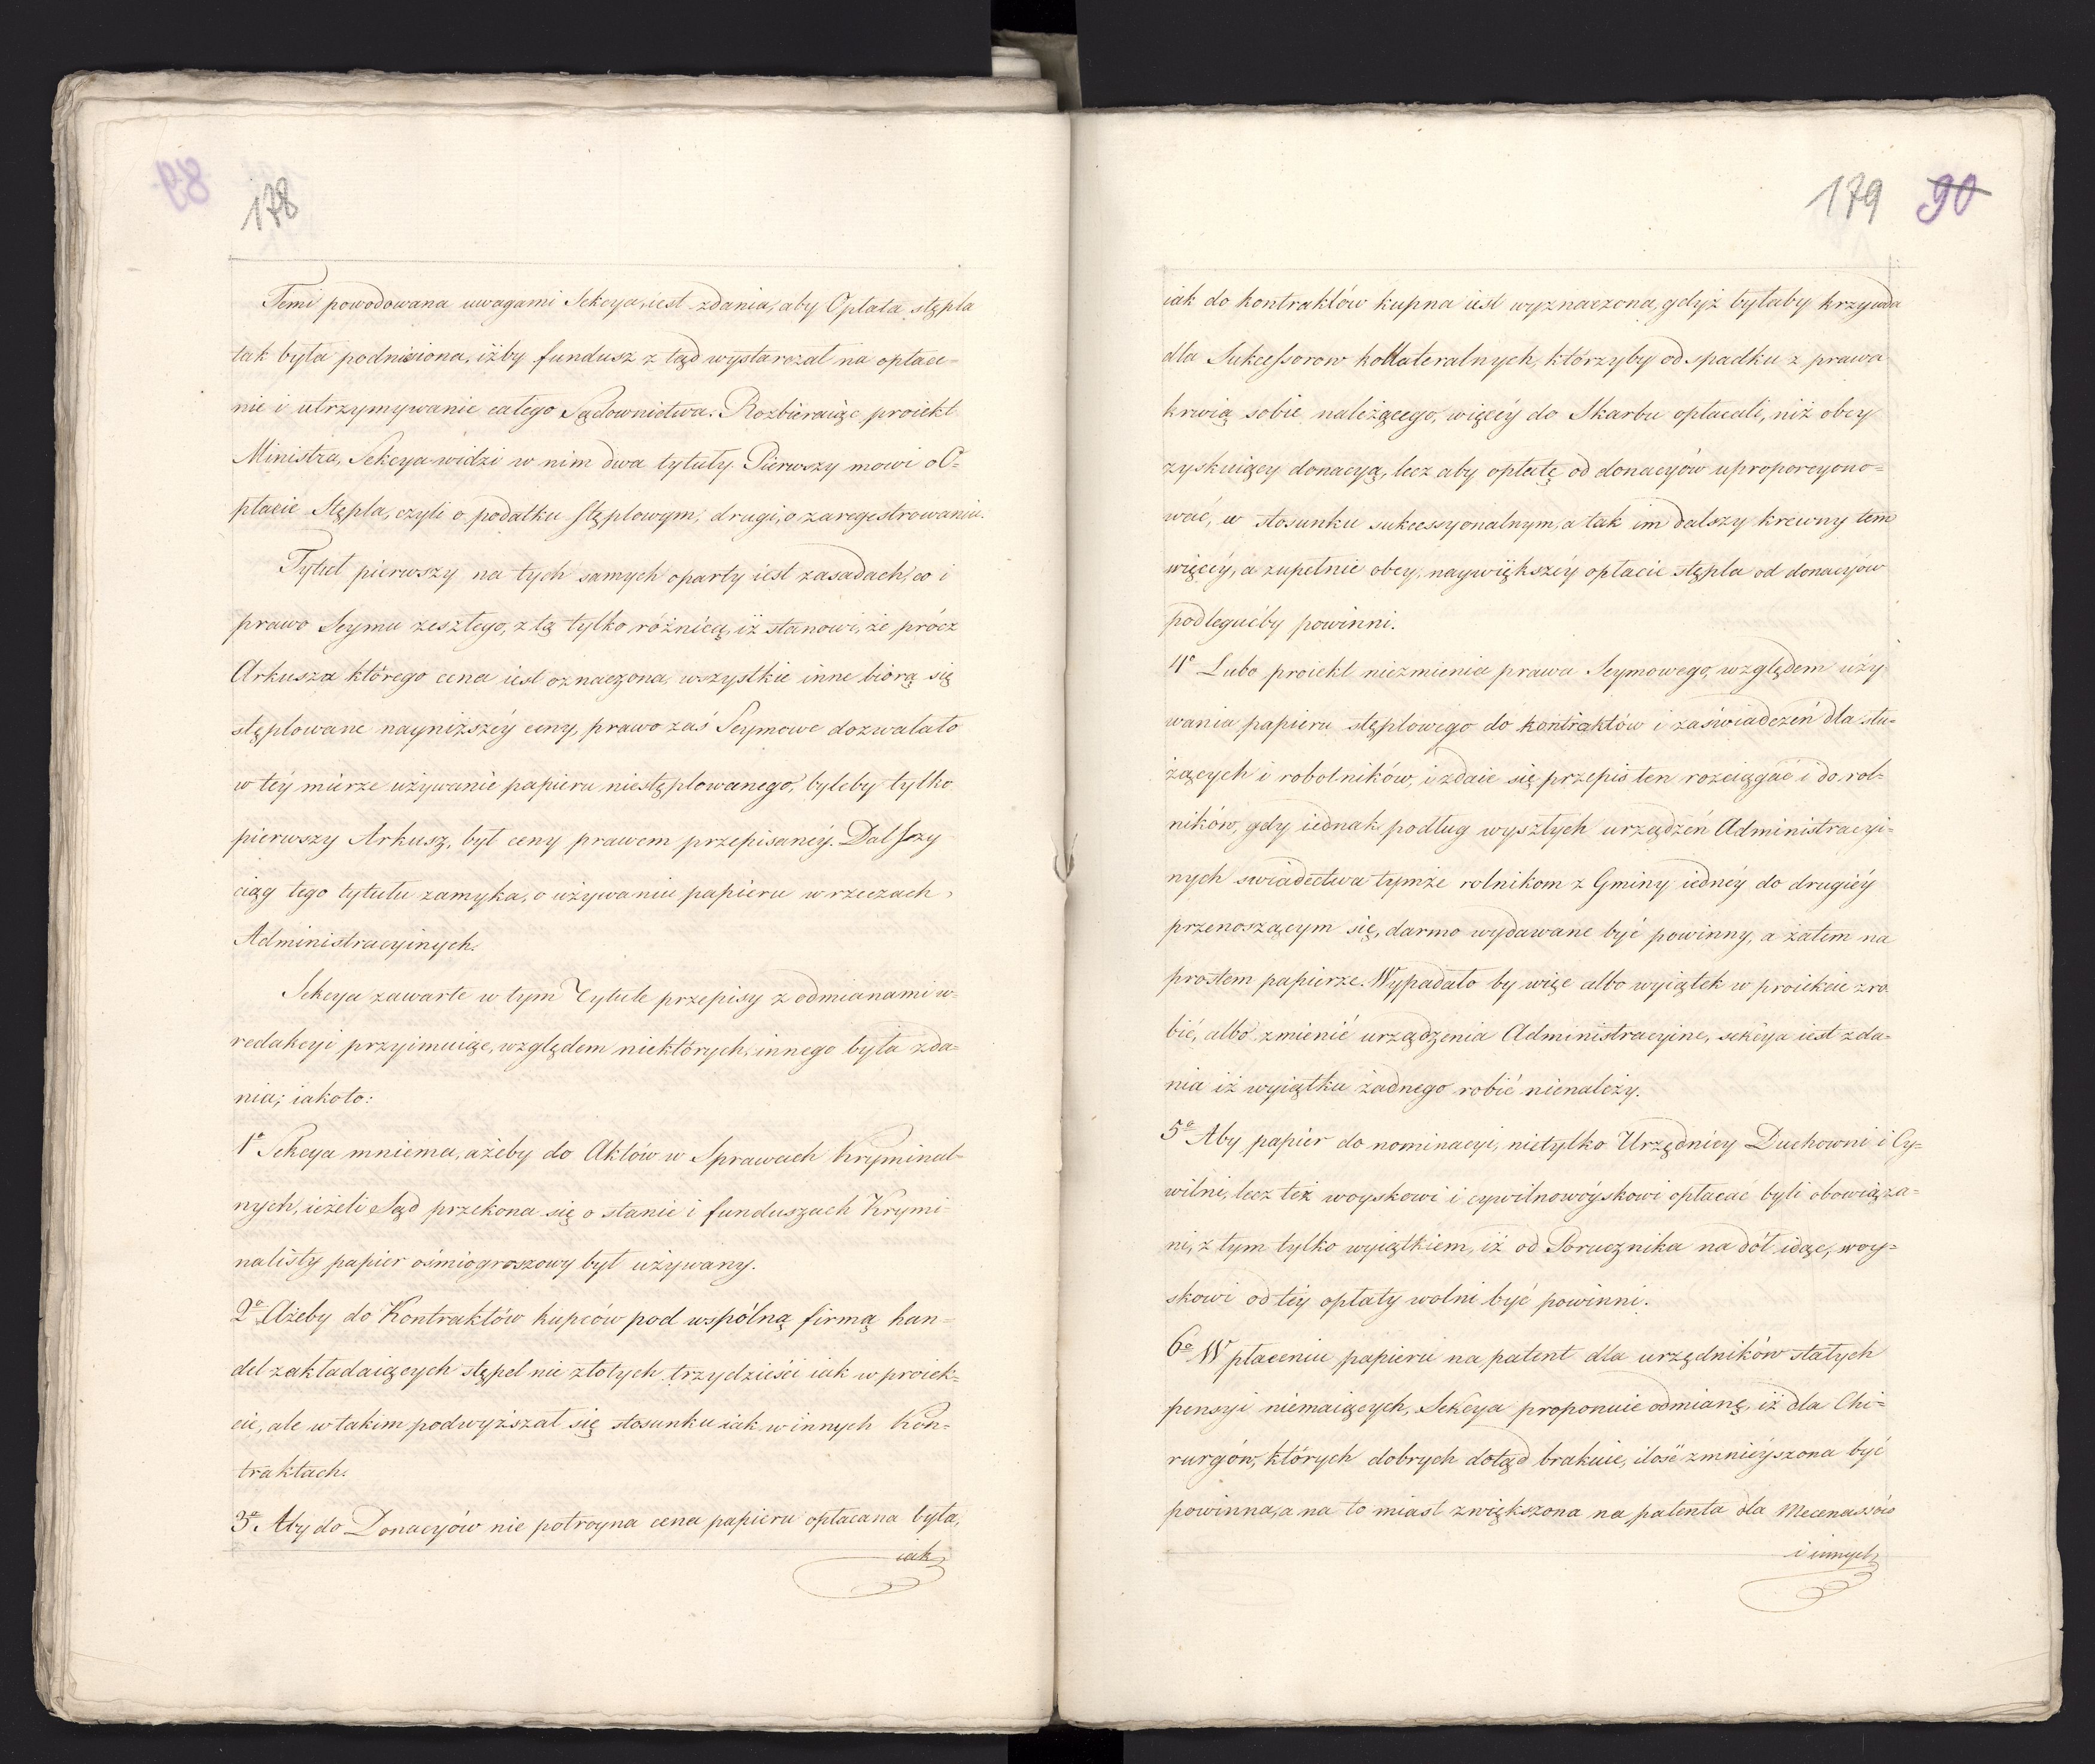 89
178
Temi powodowana uwagami Sekcya, iest zdania, aby Opłata stępla
tak była podniesiona, iżby fundusz z tąd wystarczał na opłace-
nie i utrzymywanie całego Sądownictwa. Rozbieraiąc proiekt
Ministra, Sekcya widzi w nim dwa tytuły. Pierwszy mowi o O-
płacie Stępla, czyli o podatku stęplowym; drugi, o zaregestrowaniu.
Tytuł pierwszy na tych samych oparty iest zasadach, co i
prawo Seymu zeszłego, z tą tylko różnicą, iż stanowi, że prócz
Arkusza którego cena iest oznaczona, wszystkie inne biorą się
stęplowane nayniższéy ceny, prawo zaś Seymowe dozwalało
w téy mierze używanie papieru niestęplowanego, byleby tylko
pierwszy Arkusz, był ceny prawem przepisanéy. Dalszy
ciąg tego tytułu zamyka, o używaniu papieru w rzeczach
Administracyinych.
Sekcya zawarte w tym Tytule przepisy z odmianami w-
redakcyi przyimuiąc, względem niektórych, innego była zda-
nia; iakoto:
1º Sekcya mniema, ażeby do Aktów w Sprawach Kryminal-
nych, ieżeli Sąd przekona się o stanie i funduszach Krymi-
nalisty papier ośmiogroszowy był używany.
2º Ażeby do Kontraktów kupców pod wspólną firmą han-
del zakładaiących stępel nie złotych trzydzieści iak w proiek-
cie, ale w takim podwyższał się stosunku iak w innych Kon-
traktach.
3º Aby do Donacyów nie potroyna cena papieru opłacana była,
iak
179 90
iak do kontraktów kupna iest wyznaczona, gdyż byłaby krzywda
dla Sukcessorow kollateralnych, którzyby od spadku z prawa
krwią sobie należącego, więcéy do Skarbu opłacali, niż obcy
zyskuiący donacyą, lecz aby opłatę od donacyów uproporcyono-
wać, w stosunku sukcessyonalnym, a tak im dalszy krewny tem
więcéy, a zupełnie obcy, naywiększéy opłacie stępla od donacyów
podlegaćby powinni.
4º Lubo proiekt niezmienia prawa Seymowego, względem uży
wania papieru stęplowego do kontraktów i zaświadczeń dla słu-
żących i robotników, i zdaie się przepis ten rozciągać i do rol-
ników, gdy iednak podług wyszłych urządzeń Administracyi-
nych swiadectwa tymże rolnikom z Gminy iednéy do drugiéy
przenoszącym się, darmo wydawane być powinny, a zatem na
prostem papierze. Wypadało by więc albo wyiątek w proiekcie zro
bić, albo zmienić urządzenia Administracyine, sekcya iest zda-
nia iż wyiątku żadnego robić nienależy.
5º Aby papier do nominacyi, nietylko Urzędnicy Duchowni i Cy-
wilni, lecz też woyskowi i cywilnowóyskowi opłacać byli obowiąza-
ni, z tym tylko wyiątkiem, iż od Porucznika na dół idąc, woy-
skowi od téy opłaty wolni być powinni.
6º W płaceniu papieru na patent dla urzędników stałych
pensyi niemaiących, Sekcya proponuie odmianę, iż dla Chi-
rurgów, których dobrych dotąd brakuie, ilość zmnieyszona być
powinna, a na to miast zwiększona na patenta dla Mecenassów
i innych